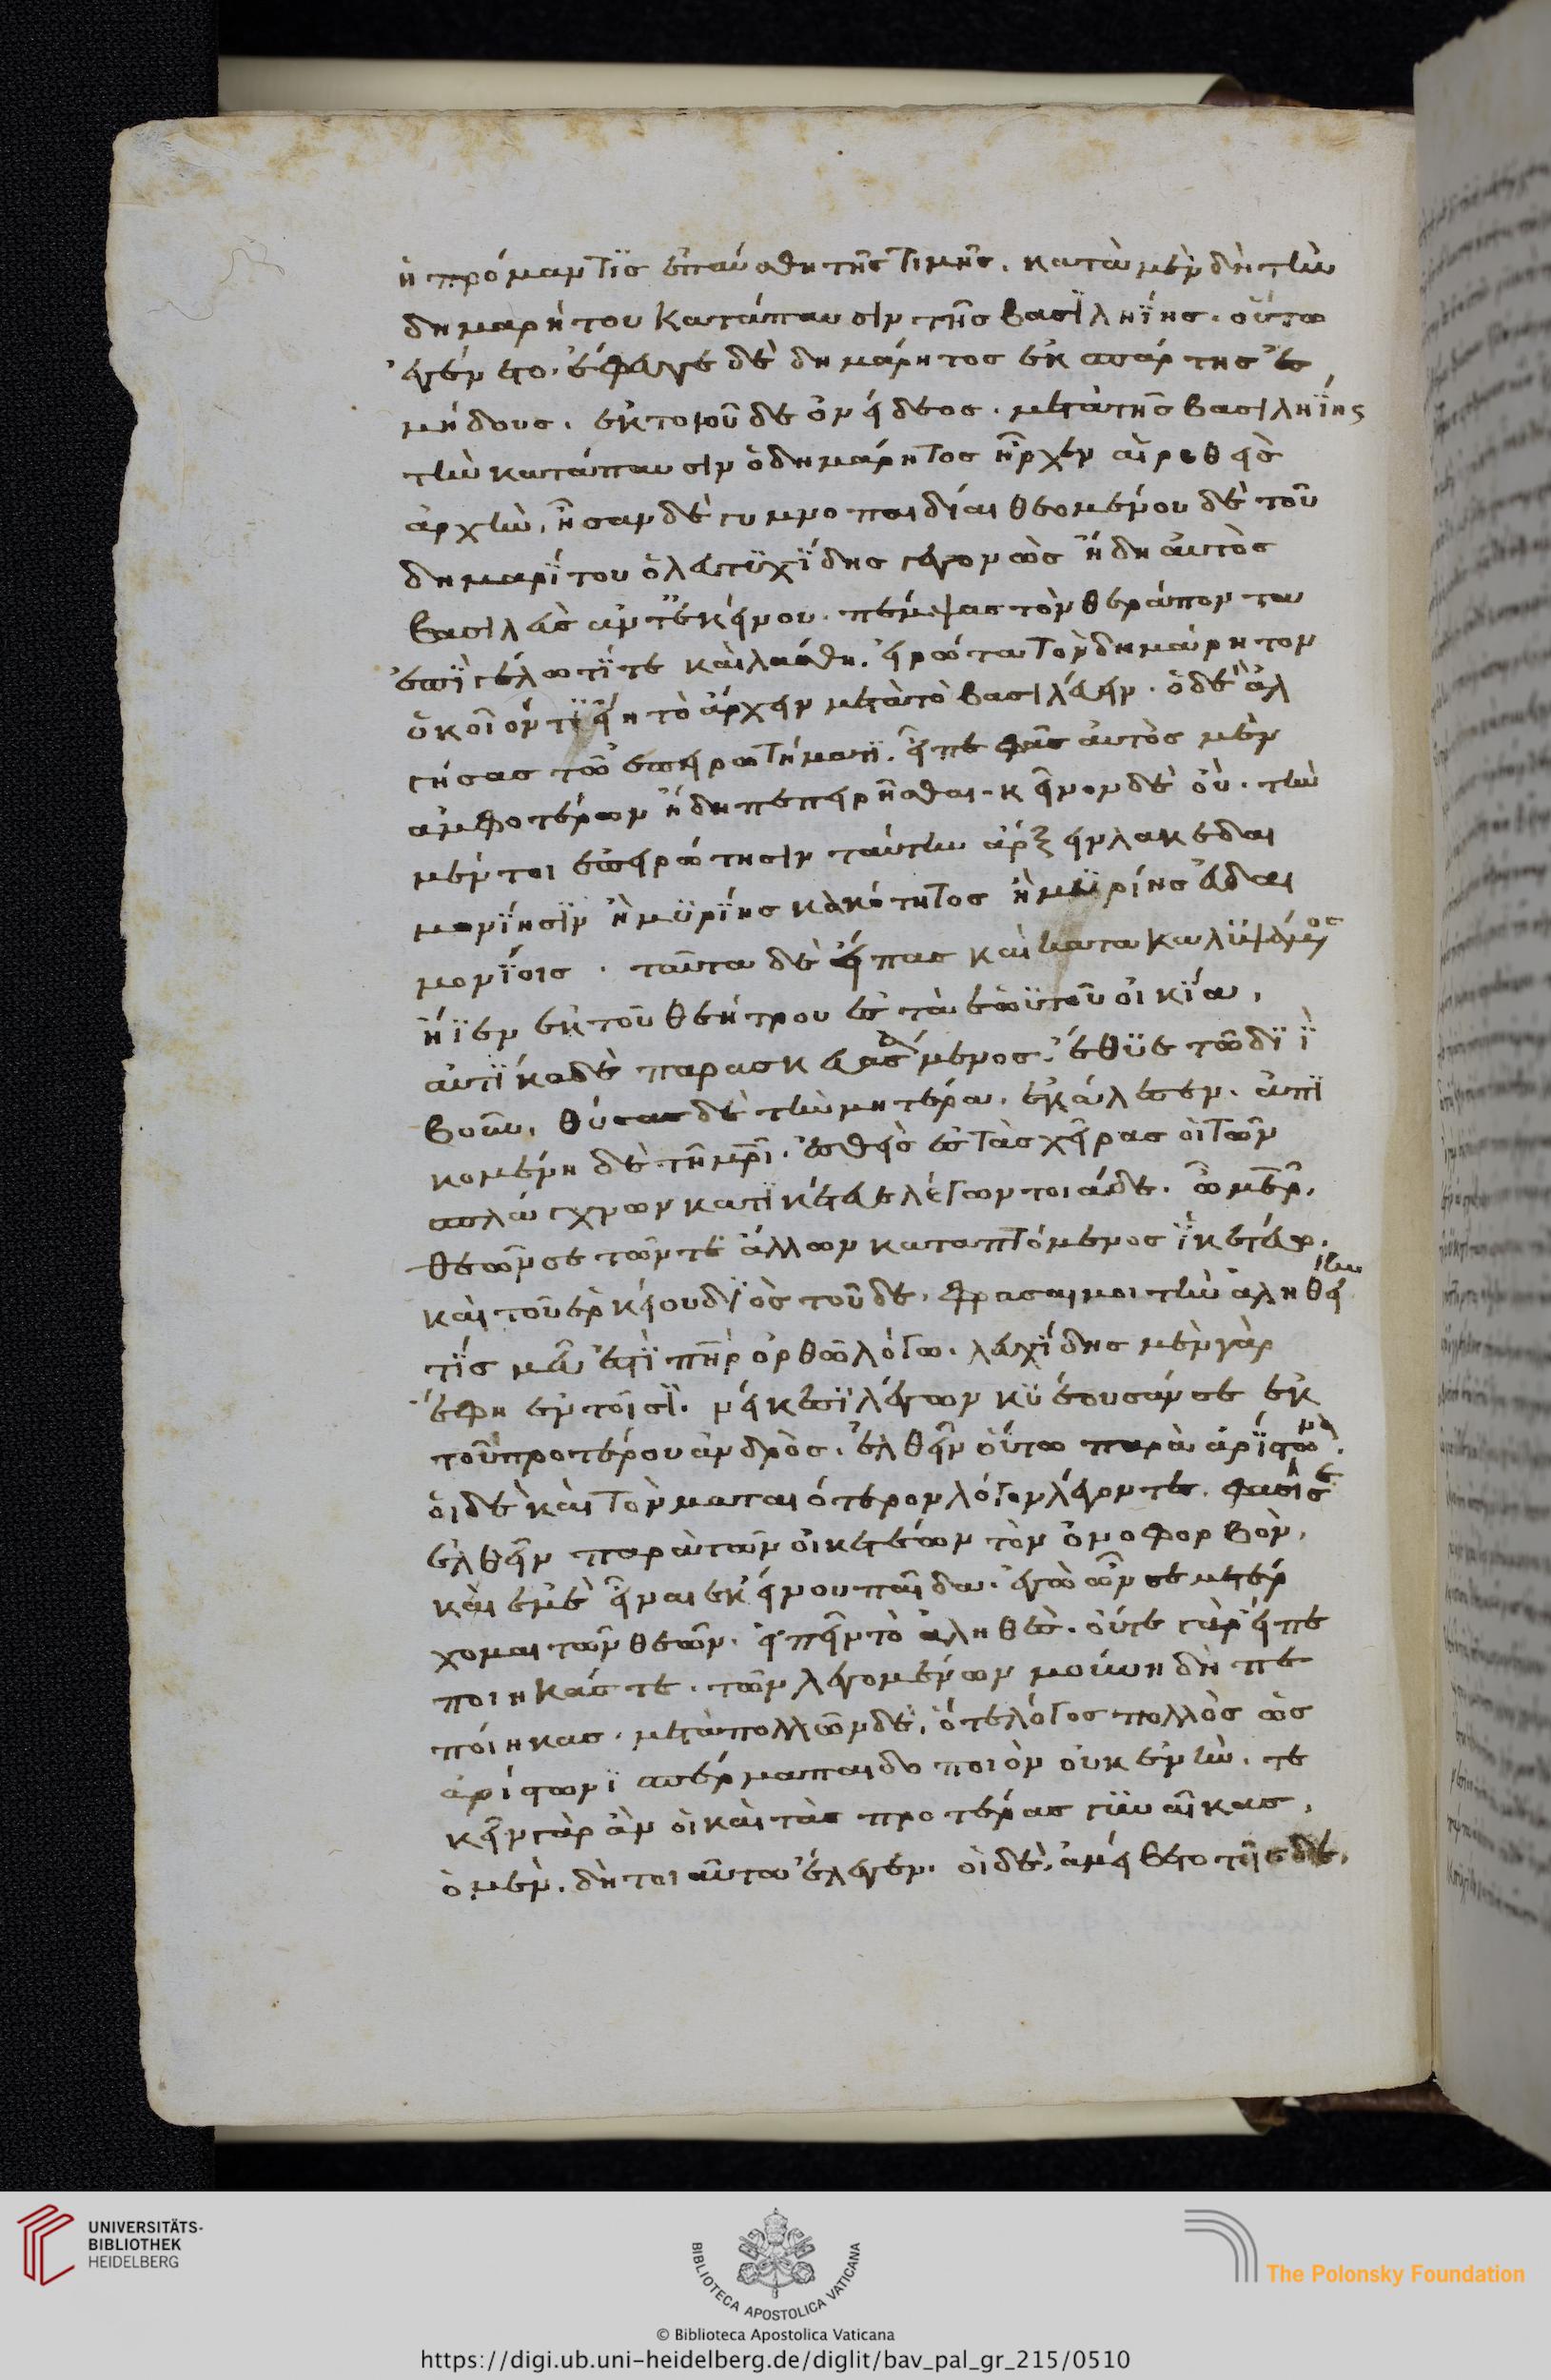 ἡ πρόμαντϊς ἐπαύσθη τῆς τιμῆς. κατὰ μὲν δὴ τὴν
δημαρήτου κατάπαυσιν τῆς βασιληΐης. οὕτω
ἐγένετο. ἔφευγε δὲ δημάρητος ἐκ σπάρτης ἐς
μήδους. ἐκ τοιοῦδε ὀνείδεος. μετὰ τῆς βασιληΐης
τὴν κατάπαυσιν ὁ δημάρητος ἦρχεν αἱρεθεὶς
ἀρχὴν. ἦσαν δὲ γυμνοπαιδίαι θεομένου δὲ τοῦ
δημαρίτου ὁ λευτϋχΐδης γεγονὼς ἤδη αὐτὸς
βασιλεὺς ἀντ' ἐκείνου. πέμψας τὸν θεράποντα
ἐπϊ γέλωτΐ τε καὶ λάσθη. εἰρώτα τὸν δημάρητον
ὁκοῖόν τϊ εἴη τὸ ἄρχειν μετὰ τὸ βασιλεύειν. ὁ δὲ ἀλ
γήσας τῶ ἐπειρωτήματϊ. εἶπε φὰς αὐτὸς μὲν
ἀμφοτέρων ἤδη πεπειρῆσθαι. κεῖνον δὲ οὔ. τὴν
μέντοι ἐπειρώτησιν ταύτην ἄρξειν λακεδαι
μονΐησϊν ἢ μϋρΐης κακότητος ἢ μϋρίης εὐδαι
μονΐοις. ταῦτα δὲ εἴπας καὶ κατακαλϋψάμενος
ἤϊεν ἐκ τοῦ θεήτρου ἐς τὰ ἑωϋτοῦ οἰκΐα.
αὐτΐκα δὲ παρασκευασάμενος. ἔθϋε τῶ διῒ
βοῦν. θύσας δὲ τὴν μητέρα. ἐκάλεσεν. ἀπϊ
κομένη δὲ τῆ μρϊ. ἐσθεὶς ἐς τὰς χεῖρας οἱ τῶν
σπλάγχνων κατϊκέτευε λέγων τοιάδε. ὦ μῆερ.
θεῶν σε τῶν τε ἄλλων καταπτόμενος ἱκετεύω.
καὶ τοῦ ἑρκείου διὸς τοῦδε. φρασαι μοι τὴν ἀληθείην
τίς μεῦ ἐστϊ πηρ ὀρθῶ λόγω. λευχΐδης μὲν γὰρ
ἔφη ἐν τοῖσϊ. νείκεσϊ λέγων κϋέουσάν σε ἐκ
τοῦ προτέρου ἀνδρὸς. ἐλθεῖν οὕτω παρὰ ἀρΐστωνα.
οἱ δὲ καὶ τὸν ματαιότερον λόγον λέγοντες. φασί σε
ἐλθεῖν παρὰ τῶν οἰκετέων τὸν ὀνοφορβὸν.
καὶ ἐμὲ εἶναι ἐκείνου παῖδα. ἐγὼ ὦν σε μετέρ
χομαι τῶν θεῶν. εἰπεῖν τὸ ἀληθὲς. οὔτε γὰρ εἴπε
ποιηκάς τε. τῶν λεγομένων μούνη δὴ πε
ποίηκας. μετὰ πολλῶν δέ. ὅ τε λόγος πολλὸς ὡς
ἀρίστωνϊ σπέρμα παιδοποιὸν οὐκ ἐνῆν. τε
κεῖν γὰρ ἄν οἱ καὶ τὰς προτέρας γϋναῖκας.
ὁ μὲν. δὴ τοιαῦτα ἔλεγεν. οἱ δὲ ἀμείβετο τῆσδε.
UNIVERSITÄTS-
BIBLIOTHEK
HEIDELBERG
BIBLIOTECA APOSTOLICA VATICANA
The Polonsky Foundation
© Biblioteca Apostolica Vaticana
https://digi.ub.uni-heidelberg.de/diglit/bav_pal_gr_215/0510